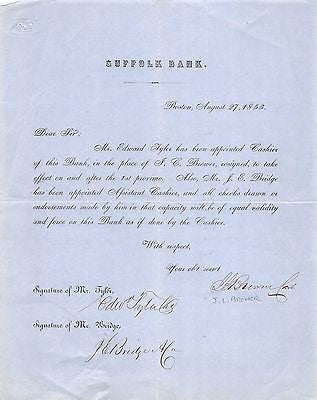 SUFFOLK BANK.
Boston, August 27, 1853.
Dear Sir:
Mr. Edward Tyler has been appointed Cashier
of this Bank, in the place of I. C. Brewer, resigned, to take
effect on and after the 1st proximo. Also, Mr. J. E. Bridge
has been appointed Assistant Cashier, and all checks drawn or
endorsements made by him in that capacity will be of equal validity
and force on this Bank as if done by the Cashier.
With respect,
Your obt servt
Signature of Mr. Tyler,
J. L. BREWER
Edwd Tyler
Signature of Mr. Bridge,
J E Bridge